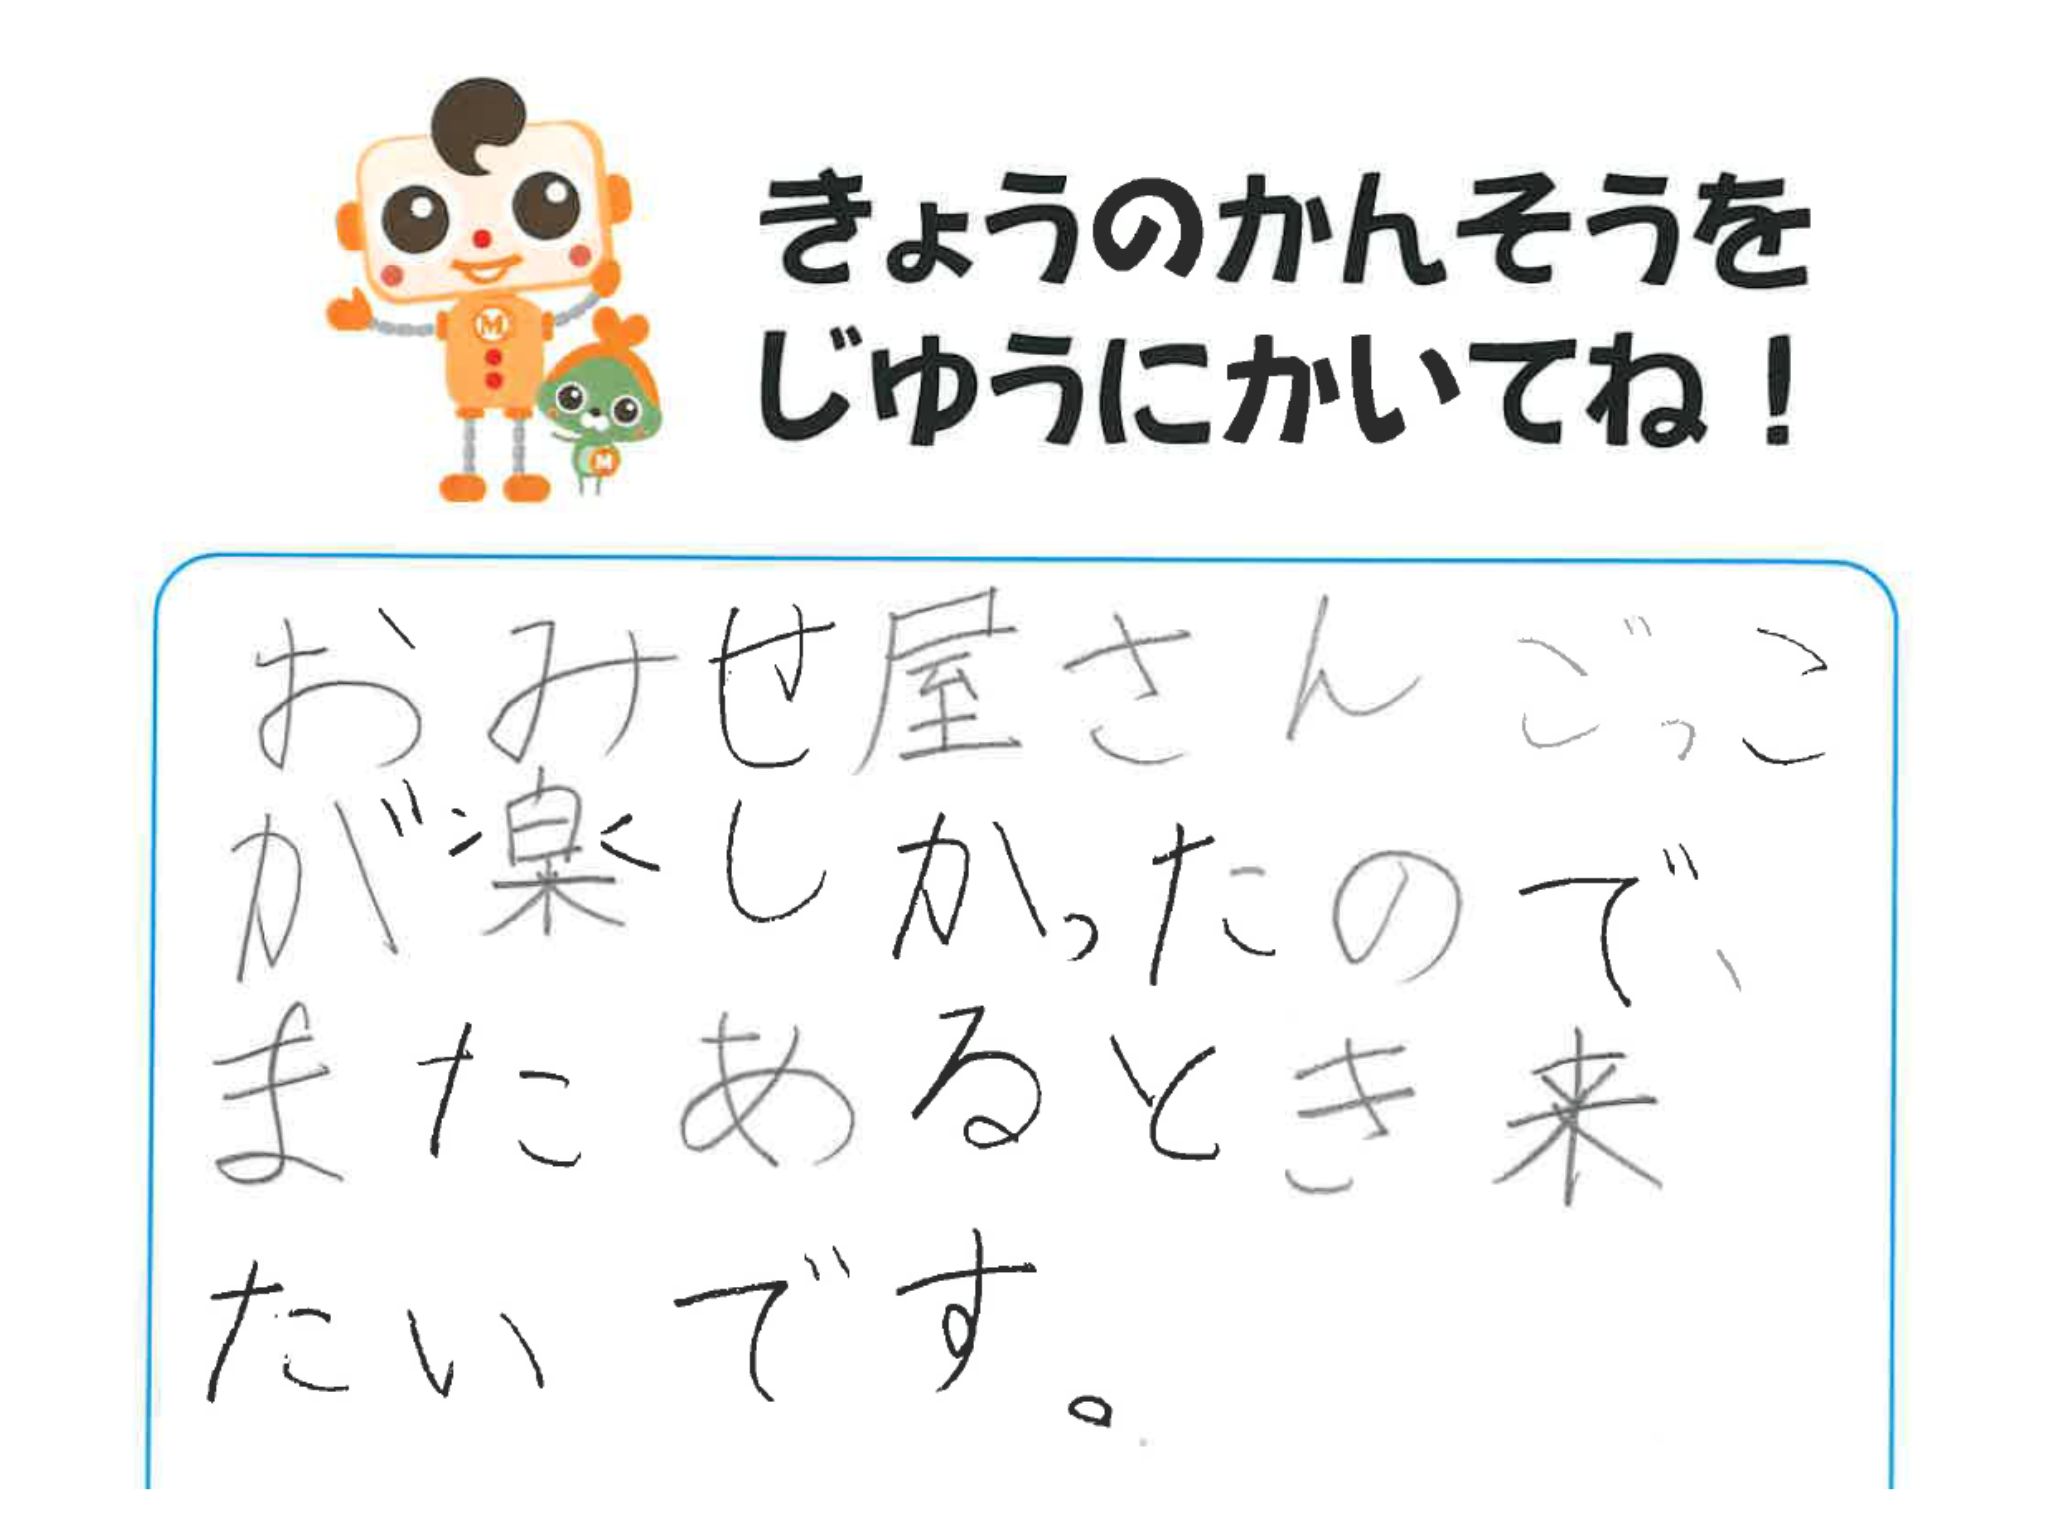 きょうのかんそうを
じゆうにかいてね！
M
M
おみせ屋さんごっこ
が楽しかったので、
またあるとき来
たいです。